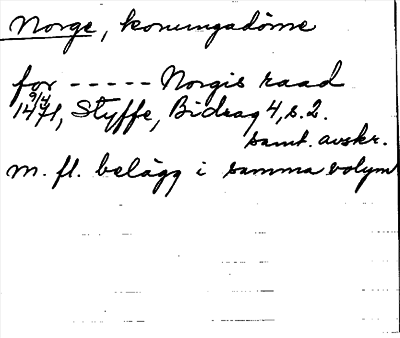 Norge, konungadöme
for ----- Norgis raad
9/4 1471, Styffe, Bidrag 4, s. 2.
samt. avskr.
m. fl. belägg i samma volym